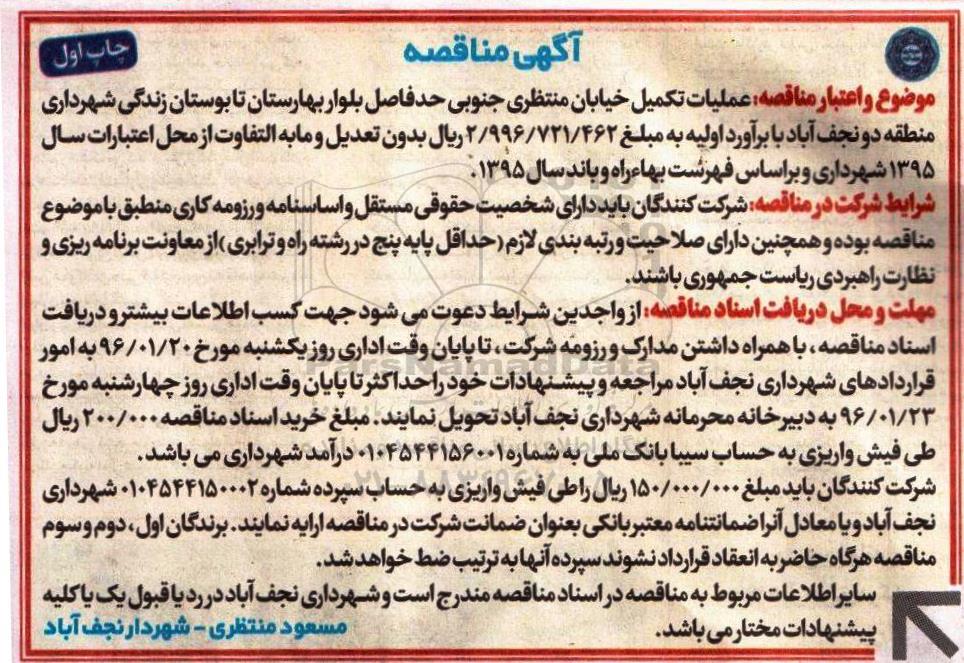 آگهی مناقصه
چاپ اول
موضوع و اعتبار مناقصه: عملیات تکمیل خیابان منتظری جنوبی حدفاصل بلوار بهارستان تا بوستان زندگی شهرداری
منطقه دو نجف آباد با برآورد اولیه به مبلغ ۲/۹۹۶/۷۲۱/۴۶۲ ریال بدون تعدیل و مابه التفاوت از محل اعتبارات سال
۱۳۹۵ شهرداری و براساس فهرست بهاء راه و باند سال ۱۳۹۵.
شرایط شرکت در مناقصه: شرکت کنندگان باید دارای شخصیت حقوقی مستقل و اساسنامه و رزومه کاری منطبق با موضوع
مناقصه بوده و همچنین دارای صلاحیت و رتبه بندی لازم (حداقل پایه پنج در رشته راه و ترابری) از معاونت برنامه ریزی و
نظارت راهبردی ریاست جمهوری باشند.
مهلت و محل دریافت اسناد مناقصه: از واجدین شرایط دعوت می شود جهت کسب اطلاعات بیشتر و دریافت
اسناد مناقصه ، با همراه داشتن مدارک و رزومه شرکت ، تا پایان وقت اداری روز یکشنبه مورخ ۹۶/۰۱/۲۰ به امور
قراردادهای شهرداری نجف آباد مراجعه و پیشنهادات خود را حداکثر تا پایان وقت اداری روز چهارشنبه مورخ
۹۶/۰۱/۲۳ به دبیرخانه محرمانه شهرداری نجف آباد تحویل نمایند. مبلغ خرید اسناد مناقصه ۲۰۰/۰۰۰ ریال
طی فیش واریزی به حساب سیبا بانک ملی به شماره ۰۱۰۴۵۴۴۱۵۶۰۰۱ درآمد شهرداری می باشد.
شرکت کنندگان باید مبلغ ۱۵۰/۰۰۰/۰۰۰ ریال را طی فیش واریزی به حساب سپرده شماره ۰۱۰۴۵۴۴۱۵۰۰۰۲ شهرداری
نجف آباد و یا معادل آنرا ضمانتنامه معتبر بانکی بعنوان ضمانت شرکت در مناقصه ارایه نمایند. برندگان اول، دوم و سوم
مناقصه هرگاه حاضر به انعقاد قرارداد نشوند سپرده آنها به ترتیب ضط خواهد شد.
سایر اطلاعات مربوط به مناقصه در اسناد مناقصه مندرج است و شهرداری نجف آباد در رد یا قبول یک یا کلیه
پیشنهادات مختار می باشد.
مسعود منتظری - شهردار نجف آباد
ParsNamadData